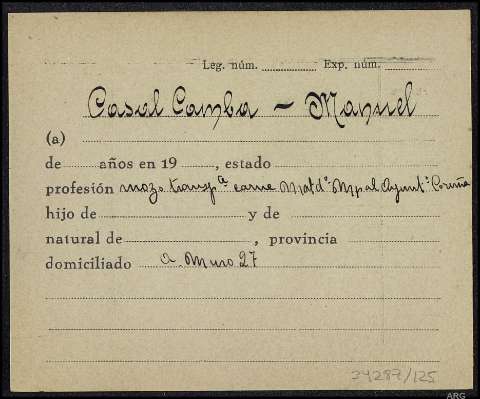 Leg. núm. Exp. núm.
Casal Camba - Manuel
(a)
de años en 19 , estado
profesión mozo transpte carne Matdo Mpal Ayuntº Coruña
hijo de y de
natural de , provincia
domiciliado a Muro 27
34287/125
ARG